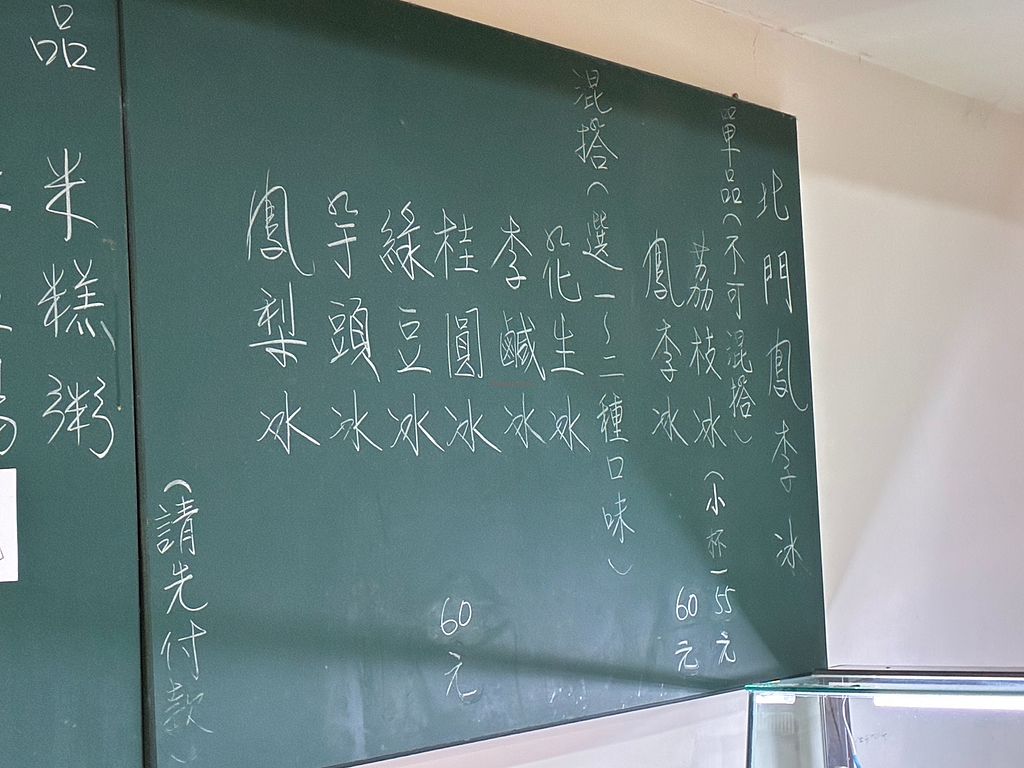 北門鳳李冰
單品(不可混搭)
荔枝冰(小杯)55元
鳳李冰 60元
混搭(選一~二種口味)
花生冰
李鹹冰
桂圓冰 60元
綠豆冰
芋頭冰
鳳梨冰
(請先付款)
品
米糕粥